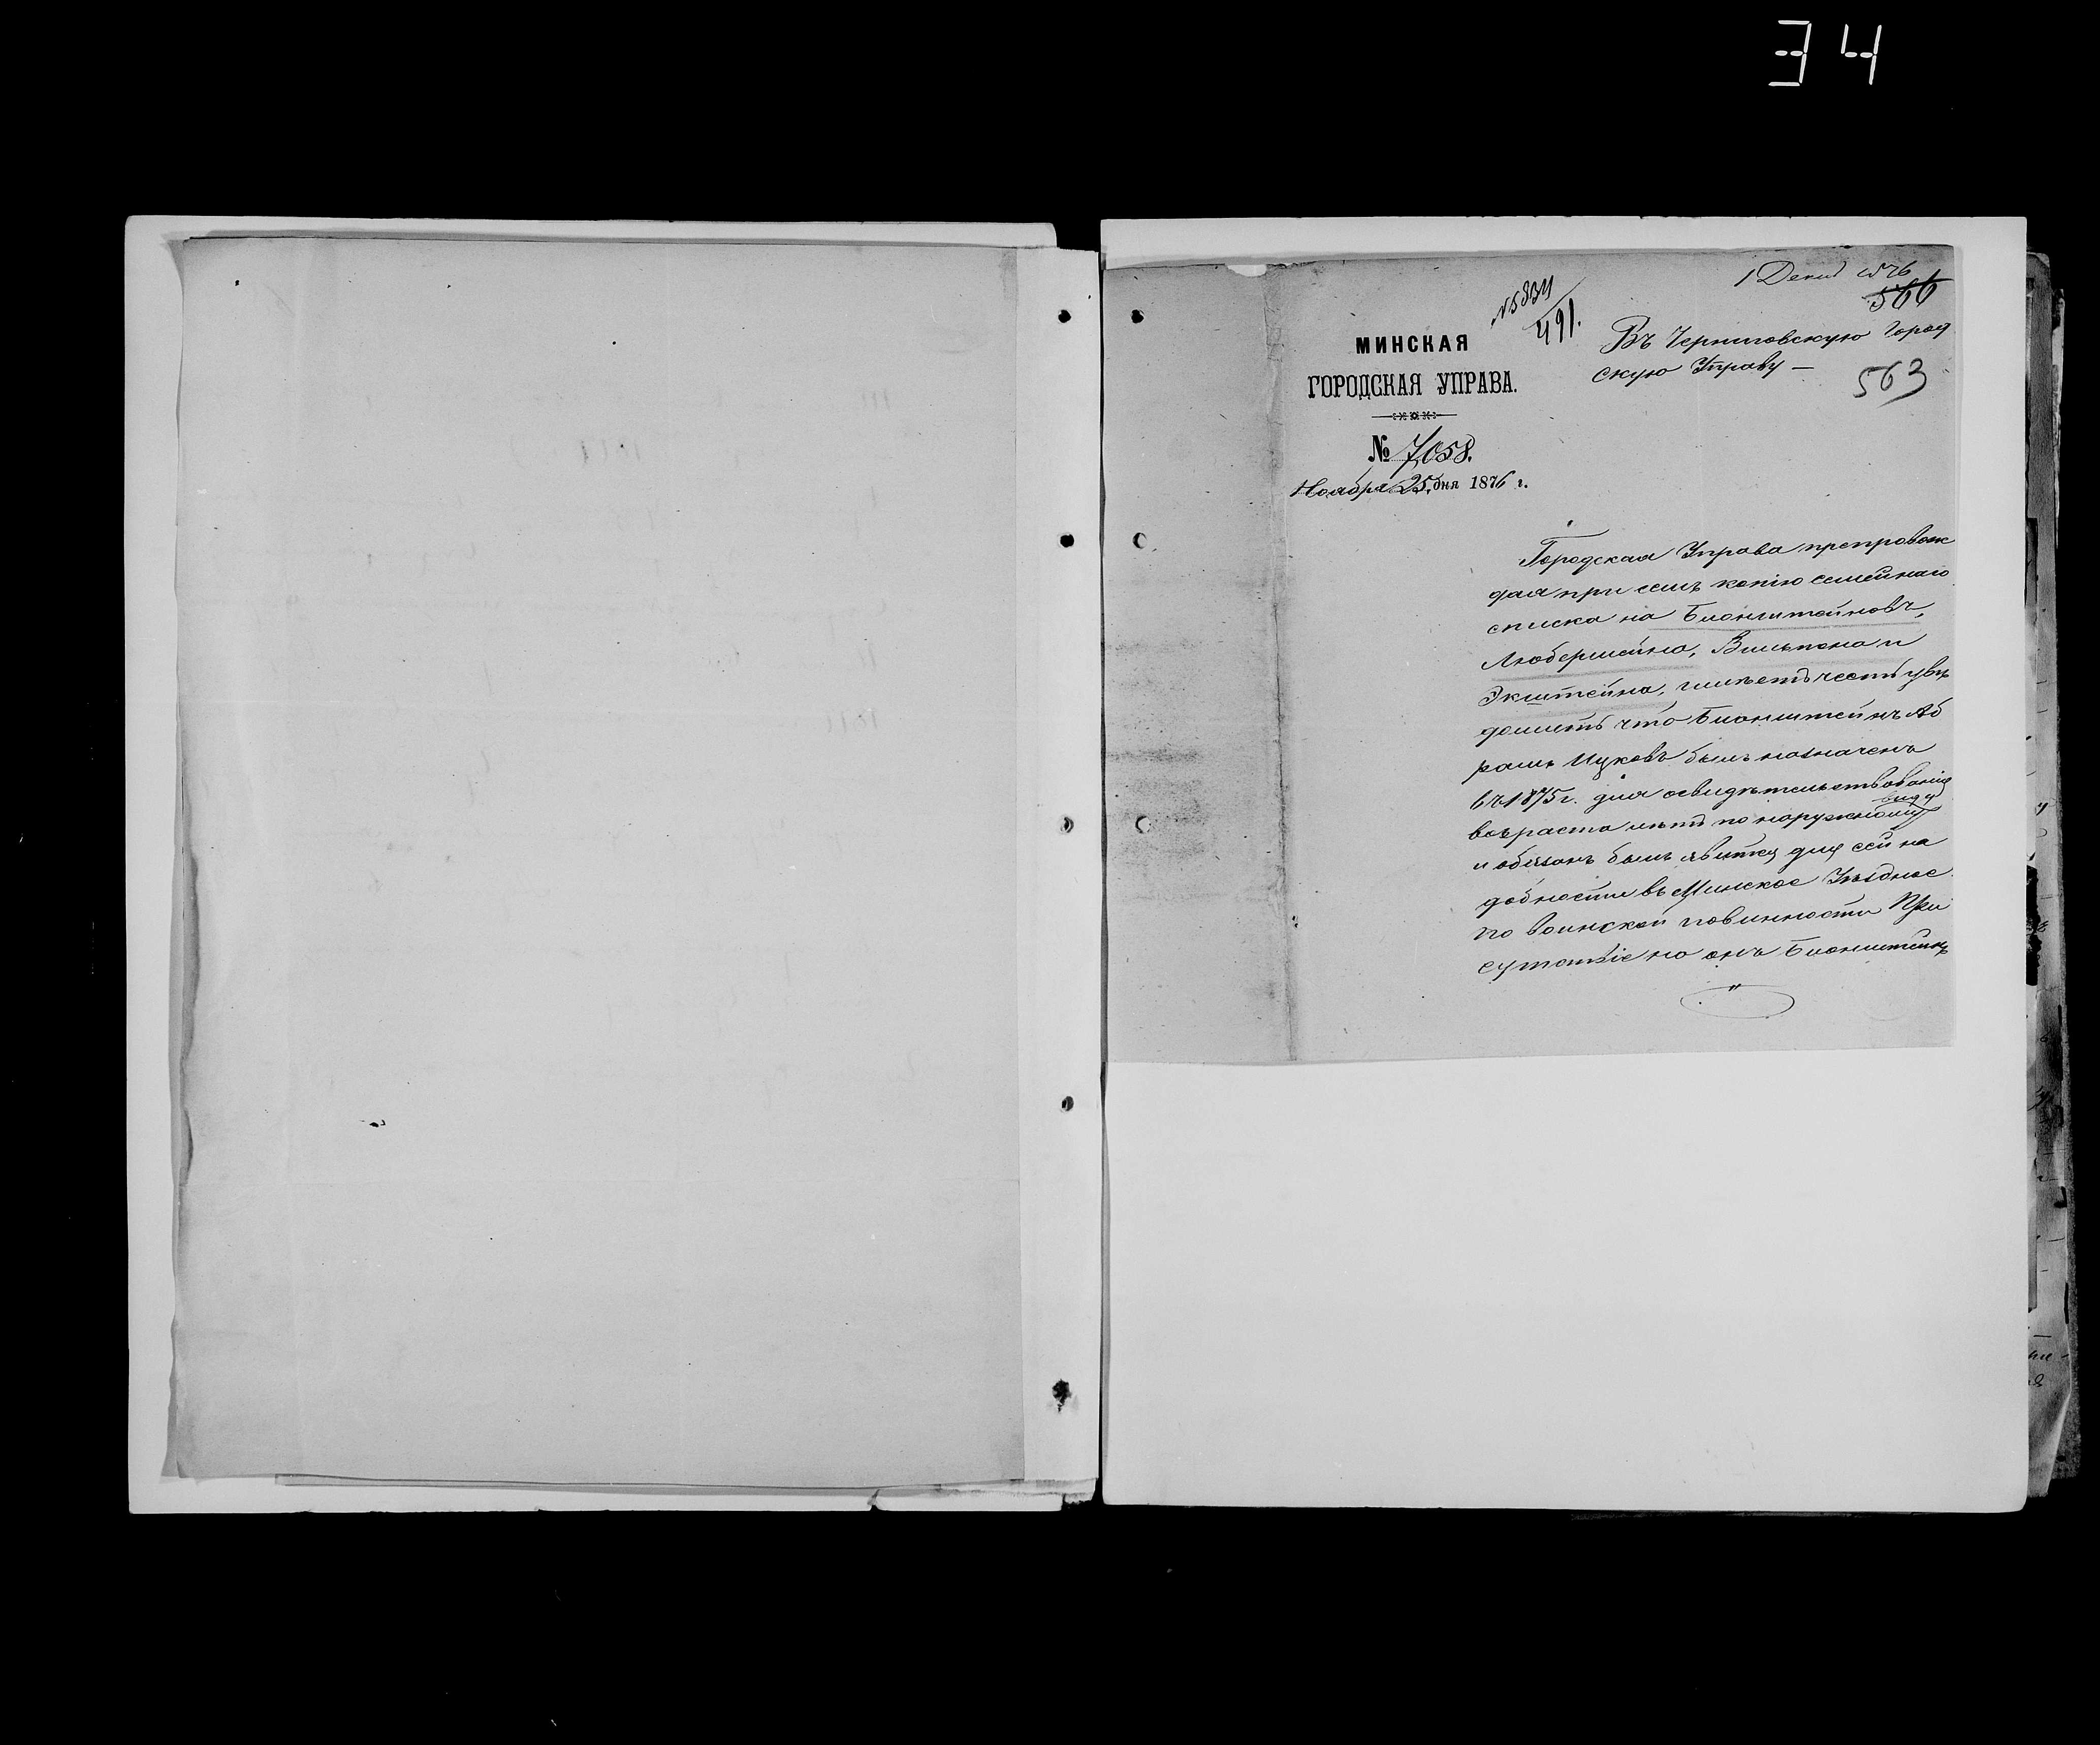 34
1 Декаб 1876
566
№ 5334
491.
МИНСКАЯ
ГОРОДСКАЯ УПРАВА.
№ 7058.
Ноября 25 дня 1876 г.
Въ Черниговскую Город
скую Управу —
563
Городская Управа препровож
дая при семъ копію семейнаго
списка на Бионштейновъ,
Любершейна, Вильпона и
Экштейна, имѣетъ честь увѣ
домить что Бионштейнъ Аб
рамъ Ицковъ былъ назначенъ
въ 1875 г. для освидѣтельствованія
возраста лѣтъ по наружному
виду
и обязанъ былъ явится для сей на
добности въ Минское Уѣздное
по воинской повинности При
сутствіе но онъ Бионштейнъ